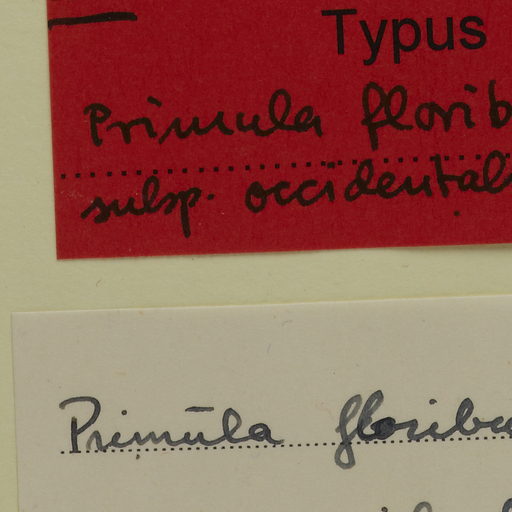 Typus
Primula florib
subsp. occidental
Primūla floribu